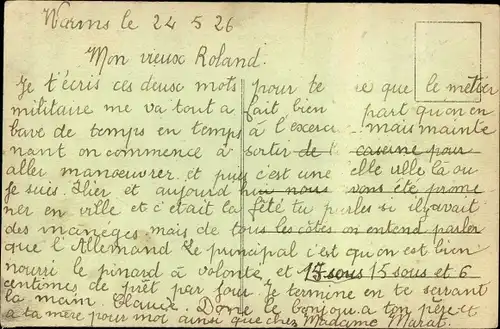 Worms le 24 5 26
Mon vieux Roland.
Je t'écris ces deux mots pour te que le metier
militaire me va tout a fait bien part qu'on en
bave de temps en temps à l'exerci mais mainte
nant on commence à sortir de l caserne pour
aller manœuvrer. et puis c'est une elle ville là ou
je suis. Hier et aujourd hui nous vons été prome
ner en ville et c'était la fête tu parles si il avait
des manèges mais de tous les côtes on entend parler
que l'Allemand Le principal c'est qu'on est bien
nourri le pinard à volonte, et 15 sous 15 sous et 6
centimes de prêt par jour. Je termine en te serrant
la main. Donne le bonjour a ton père et
a ta mère pour moi ainsi que chez Madame Marat.